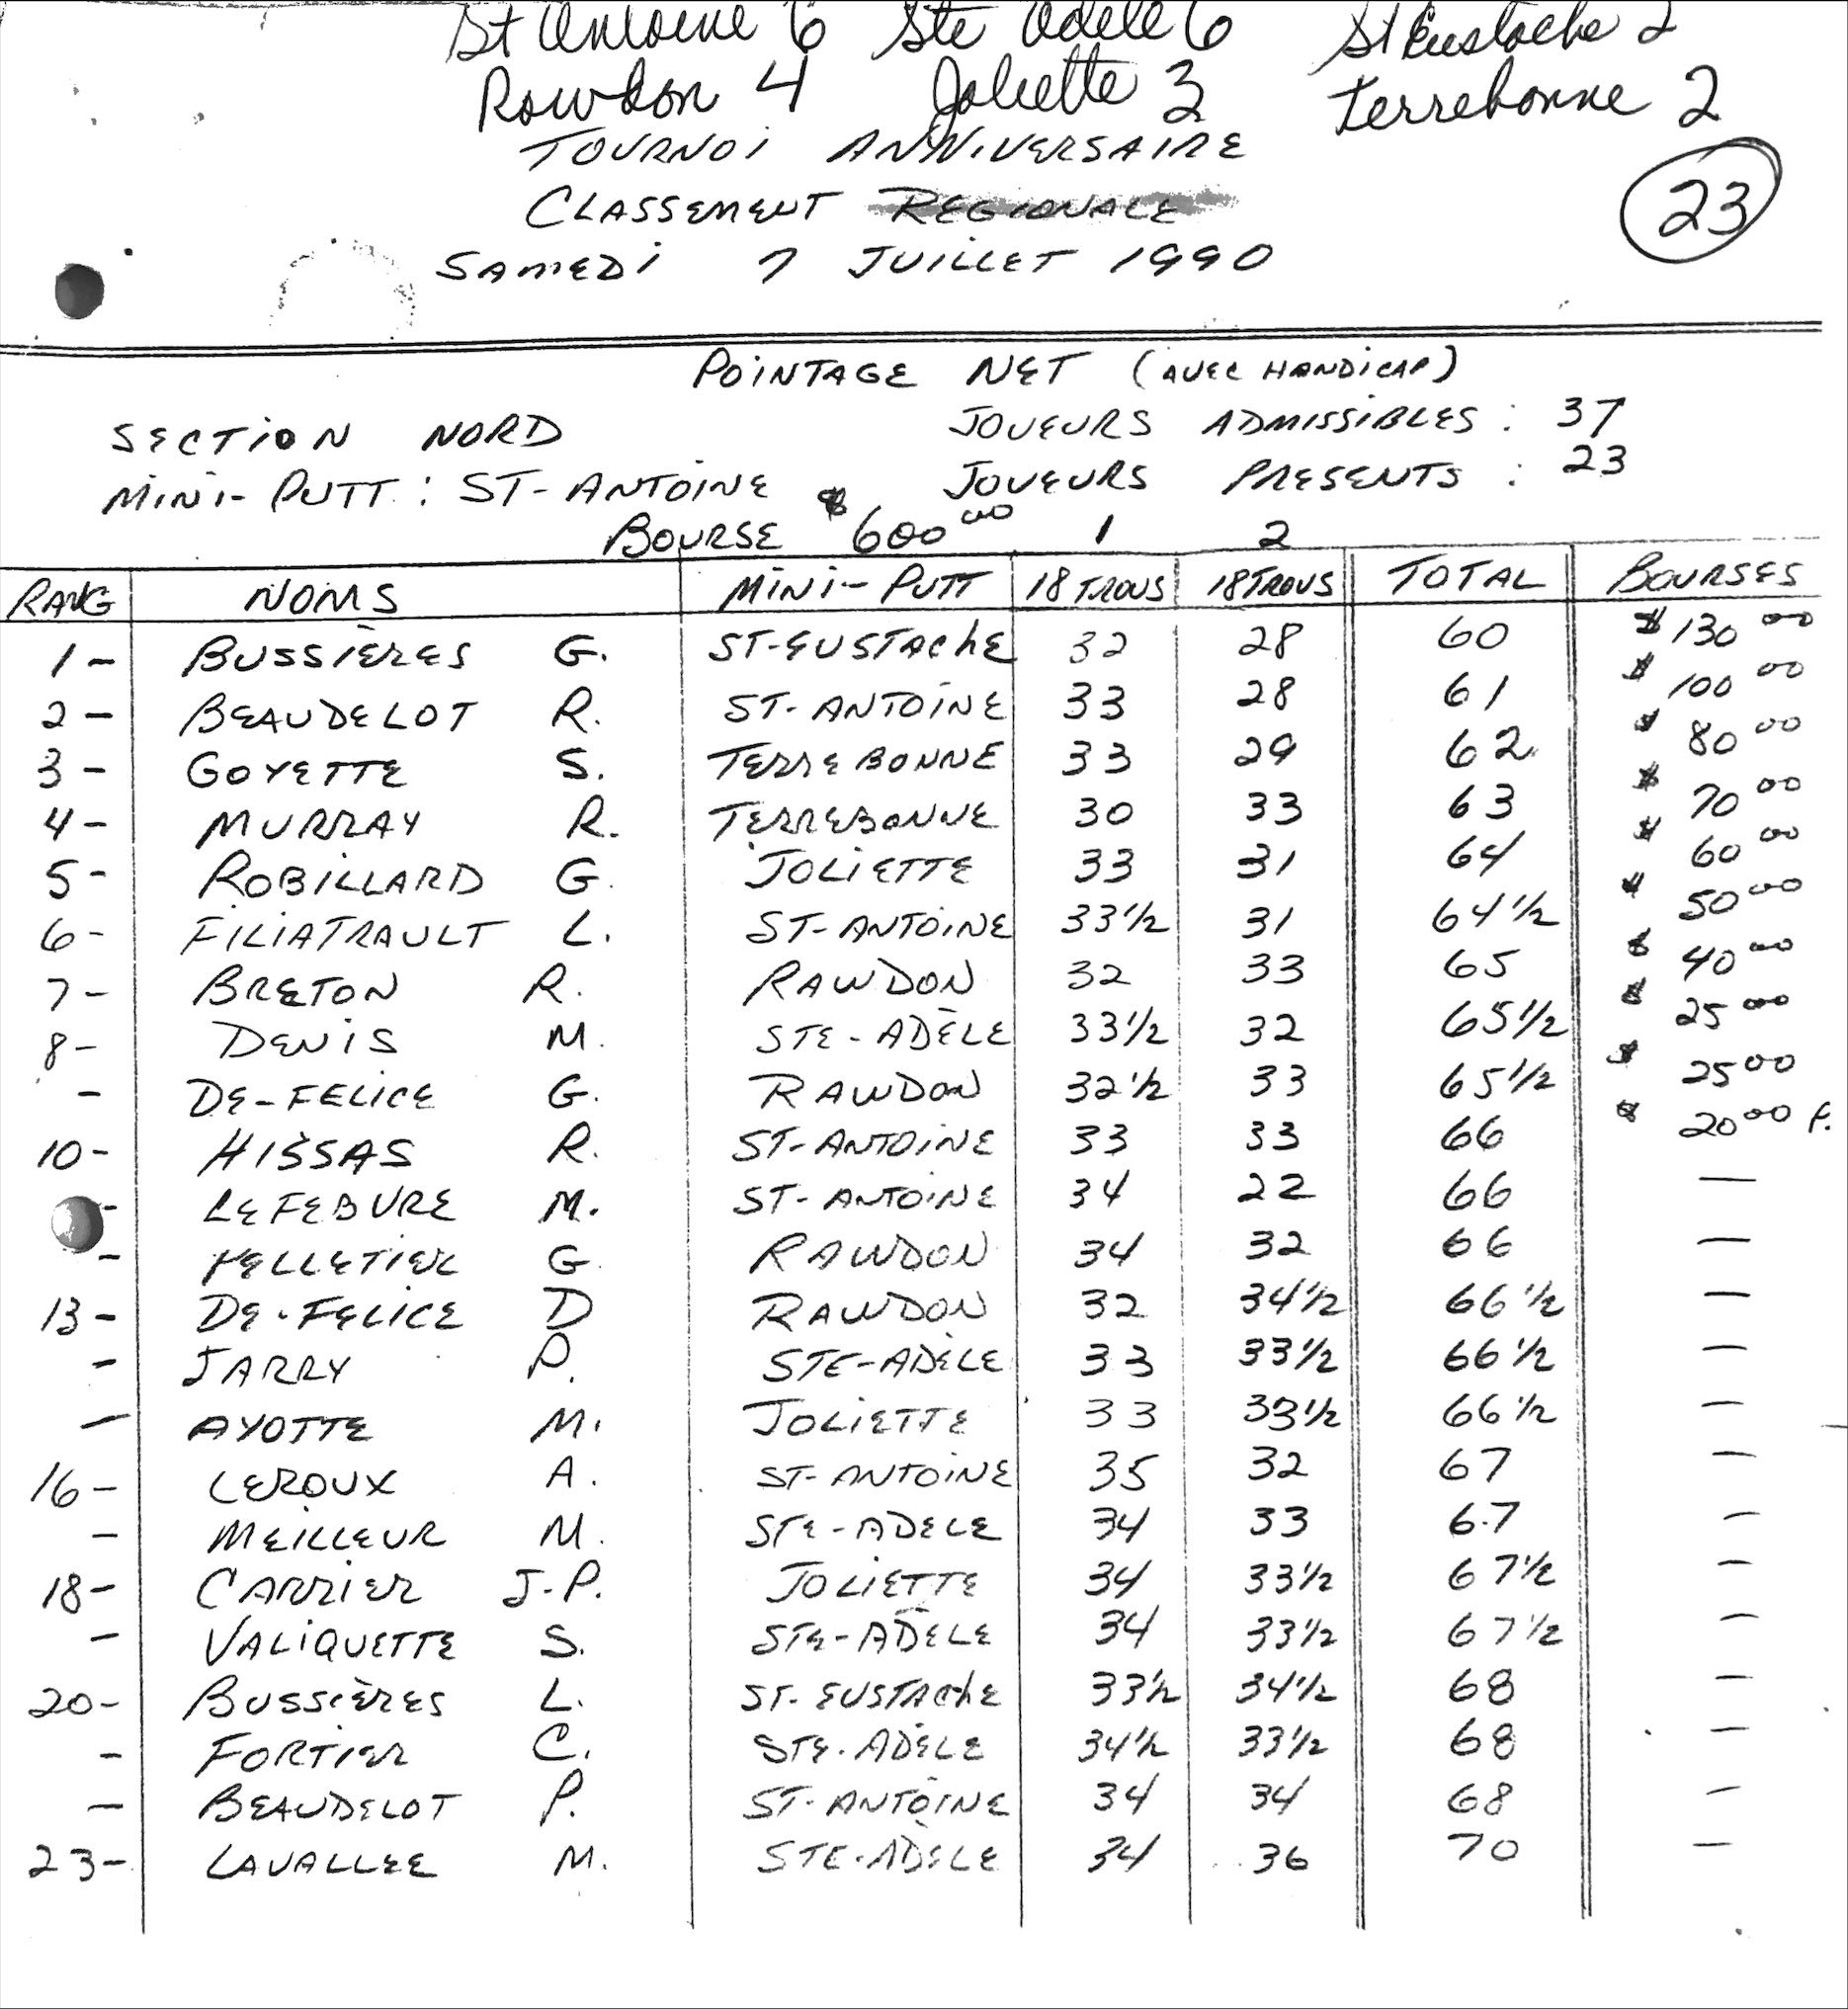 St Antoine 6 Ste Adele 6 St Eustache 2
Rawdon 4 Joliette 3 Terrebonne 2
TOURNOI ANNIVERSAIRE
CLASSEMENT REGIONALE
23
SAMEDI 7 JUILLET 1990
POINTAGE NET (AVEC HANDICAP)
SECTION NORD JOUEURS ADMISSIBLES : 37
MINI-PUTT : ST-ANTOINE JOUEURS PRESENTS : 23
BOURSE $600.00 1 2
RANG NOMS MINI-PUTT 18 TROUS 18 TROUS TOTAL BOURSES
1- BUSSIÈRES G. ST-EUSTACHE 32 28 60 $130 00
2- BEAUDELOT R. ST-ANTOINE 33 28 61 $100 00
3- GOYETTE S. TERREBONNE 33 29 62 $80 00
4- MURRAY R. TERREBONNE 30 33 63 $70 00
5- ROBILLARD G. JOLIETTE 33 31 64 $60 00
6- FILIATRAULT L. ST-ANTOINE 33 1/2 31 64 1/2 $50 00
7- BRETON R. RAWDON 32 33 65 $40 00
8- DENIS M. STE-ADÈLE 33 1/2 32 65 1/2 $25 00
- DE-FELICE G. RAWDON 32 1/2 33 65 1/2 $25 00
10- HISSAS R. ST-ANTOINE 33 33 66 $20 00 P.
- LEFEBVRE M. ST-ANTOINE 34 22 66 —
- PELLETIER G RAWDON 34 32 66 —
13- DE-FELICE D RAWDON 32 34 1/2 66 1/2 —
- JARRY P. STE-ADÈLE 33 33 1/2 66 1/2 —
- AYOTTE M. JOLIETTE 33 33 1/2 66 1/2 —
16- LEROUX A. ST-ANTOINE 35 32 67 —
- MEILLEUR M. STE-ADELE 34 33 67 —
18- CARRIER J-P. JOLIETTE 34 33 1/2 67 1/2 —
- VALIQUETTE S. STE-ADÈLE 34 33 1/2 67 1/2 —
20- BUSSIÈRES L. ST-EUSTACHE 33 1/2 34 1/2 68 —
- FORTIER C. STE-ADÈLE 34 1/2 33 1/2 68 —
- BEAUDELOT P. ST-ANTOINE 34 34 68 —
23- LAVALLEE M. STE-ADÈLE 34 36 70 —